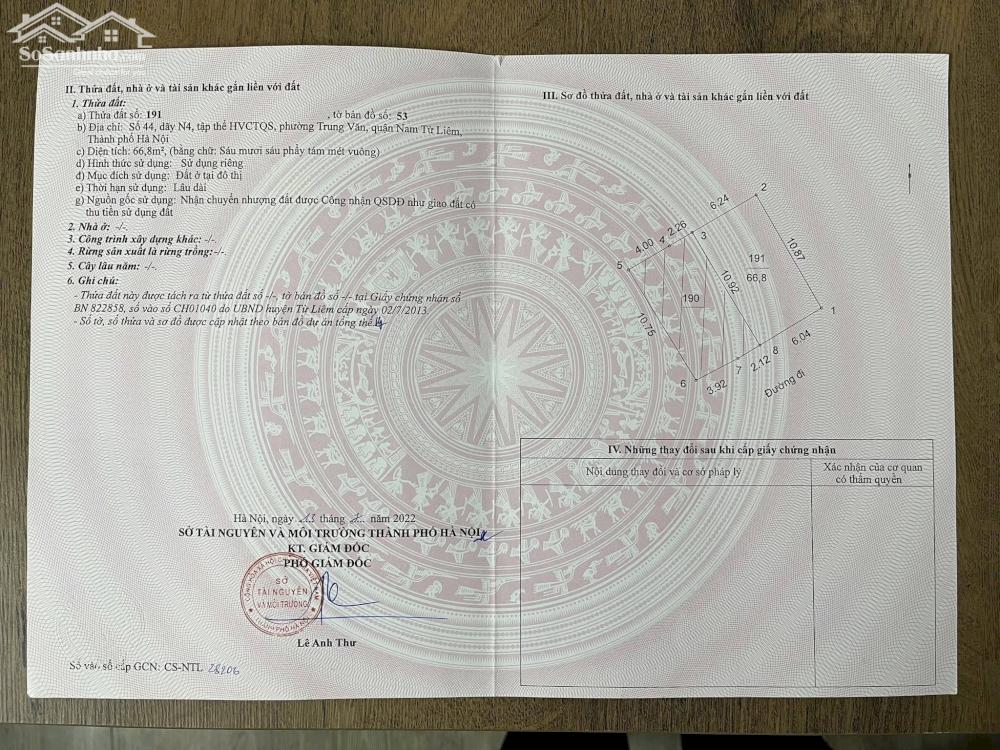 SoSanhnha.com
II. Thửa đất, nhà ở và tài sản khác gắn liền với đất
1. Thửa đất:
a) Thửa đất số: 191 , tờ bản đồ số: 53
b) Địa chỉ: Số 44, dãy N4, tập thể HVCTQS, phường Trung Văn, quận Nam Từ Liêm,
Thành phố Hà Nội
c) Diện tích: 66,8m², (bằng chữ: Sáu mươi sáu phẩy tám mét vuông)
d) Hình thức sử dụng: Sử dụng riêng
đ) Mục đích sử dụng: Đất ở tại đô thị
e) Thời hạn sử dụng: Lâu dài
g) Nguồn gốc sử dụng: Nhận chuyển nhượng đất được Công nhận QSDĐ như giao đất có
thu tiền sử dụng đất
2. Nhà ở: -/-.
3. Công trình xây dựng khác: -/-.
4. Rừng sản xuất là rừng trồng:-/-.
5. Cây lâu năm: -/-.
6. Ghi chú:
- Thửa đất này được tách ra từ thửa đất số -/-, tờ bản đồ số -/- tại Giấy chứng nhận số
BN 822858, số vào sổ CH01040 do UBND huyện Từ Liêm cấp ngày 02/7/2013.
- Số tờ, số thửa và sơ đồ được cập nhật theo bản đồ dự án tổng thể
Hà Nội, ngày tháng năm 2022
SỞ TÀI NGUYÊN VÀ MÔI TRƯỜNG THÀNH PHỐ HÀ NỘI
KT. GIÁM ĐỐC
PHÓ GIÁM ĐỐC
SỞ
TÀI NGUYÊN
VÀ MÔI TRƯỜNG
THÀNH PHỐ HÀ NỘI
Lê Anh Thư
Số vào sổ cấp GCN: CS-NTL 28206
III. Sơ đồ thửa đất, nhà ở và tài sản khác gắn liền với đất
2
6.24
2.26
3
4
4.00
5
10.87
191
66,8
10.92
190
10.75
1
6.04
8
2.12
7
3.92
6
Đường đi
IV. Những thay đổi sau khi cấp giấy chứng nhận
Nội dung thay đổi và cơ sở pháp lý
Xác nhận của cơ quan
có thẩm quyền